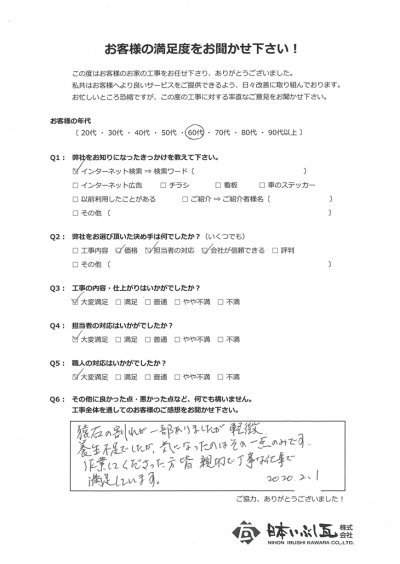 お客様の満足度をお聞かせ下さい！
この度はお客様のお家の工事をお任せ下さり、ありがとうございました。
私共はお客様へより良いサービスをご提供できるよう、日々改善に取り組んでおります。
お忙しいところ恐縮ですが、この度の工事に対する率直なご意見をお聞かせ下さい。
お客様の年代
〔 20代 ・ 30代 ・ 40代 ・ 50代 ・ 60代 ・ 70代 ・ 80代 ・ 90代以上 〕
Q1： 弊社をお知りになったきっかけを教えて下さい。
☑ インターネット検索 ⇒ 検索ワード〔 〕
□ インターネット広告 □ チラシ □ 看板 □ 車のステッカー
□ 以前利用したことがある □ ご紹介 ⇒ ご紹介者様名〔 〕
□ その他〔 〕
Q2： 弊社をお選び頂いた決め手は何でしたか？（いくつでも）
□ 工事内容 ☑ 価格 ☑ 担当者の対応 ☑ 会社が信頼できる □ 評判
□ その他〔 〕
Q3： 工事の内容・仕上がりはいかがでしたか？
☑ 大変満足 □ 満足 □ 普通 □ やや不満 □ 不満
Q4： 担当者の対応はいかがでしたか？
☑ 大変満足 □ 満足 □ 普通 □ やや不満 □ 不満
Q5： 職人の対応はいかがでしたか？
☑ 大変満足 □ 満足 □ 普通 □ やや不満 □ 不満
Q6： その他に良かった点・悪かった点など、何でも構いません。
工事全体を通してのお客様のご感想をお聞かせ下さい。
石の割れが一部ありましたが 軽微
養生不足でしたが、気になったのはその一点のみです。
作業してくださった方皆 親切で丁寧な仕事で
満足しています。 2020.2.1
ご協力、ありがとうございました！
日本いぶし瓦 株式会社
NIHON IBUSHI KAWARA CO.,LTD.